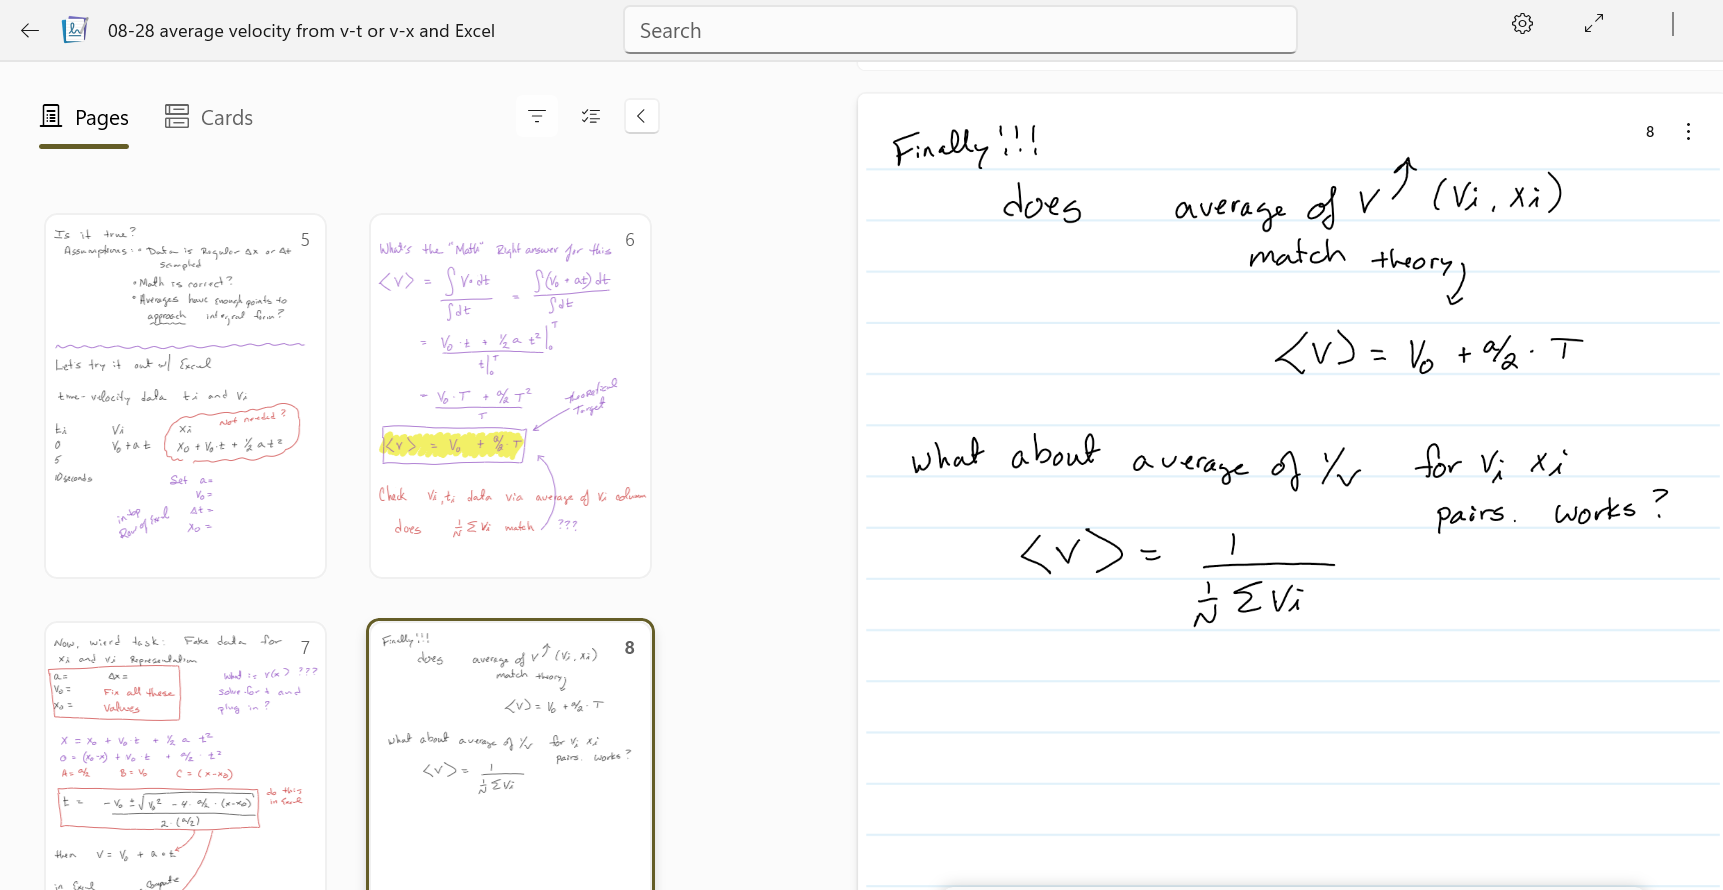 08-28 average velocity from v-t or v-x and Excel
Search
Pages
Cards
5
Is it true?
Assumptions: • Data is Regular Δx or Δt
sampled
• Math is correct?
• Averages have enough points to
approach integral form?
Let's try it out w/ Excel
time-velocity data ti and Vi
ti Vi xi not needed?
0 V₀+at x₀ + V₀·t + ½ at²
5
10 seconds
Set a=
V₀=
Δt =
x₀ =
in top
Row of Excel
6
What's the "Math" Right answer for this
<V> = ∫V·dt / ∫dt = ∫(V₀ + at) dt / ∫dt
= V₀·t + ½ a t² |₀ᵀ / t|₀ᵀ
= V₀·T + a/2 T² / T
theoretical
Target
<v> = V₀ + a/2·T
Check Vi, ti data via average of Vi column
does 1/N Σ Vi match ???
7
Now, wierd task: Fake data for
xi and vi Representation
a= Δx=
V₀= Fix all these
x₀= values
What is V(x) ???
solve for t and
plug in?
X = x₀ + V₀·t + ½ a t²
0 = (x₀-x) + V₀·t + a/2·t²
A= a/2 B= V₀ C = (x-x₀)
t = -V₀ ± √V₀² - 4·a/2·(x-x₀) / 2·(a/2)
do this
in Excel
then V= V₀ + a·t
in Excel Compute
8
Finally!!!
does average of V (Vi, xi)
match theory
<V> = V₀ + a/2·T
What about average of 1/v for Vi xi
pairs. works?
<V> = 1 / 1/N Σ Vi
8
Finally!!!
does average of V (Vi, xi)
match theory
<V> = V₀ + a/2 · T
What about average of 1/v for Vi xi
pairs. works?
<V> = 1 / 1/N Σ Vi